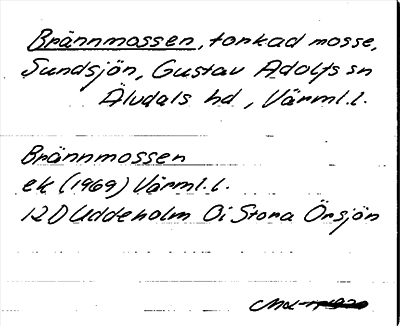 Brännmossen, torkad mosse,
Sundsjön, Gustav Adolfs sn
Älvdals hd, Värml.l.
Brännmossen
ek (1969) Värml.l.
12D Uddeholm 0i Stora Örsjön